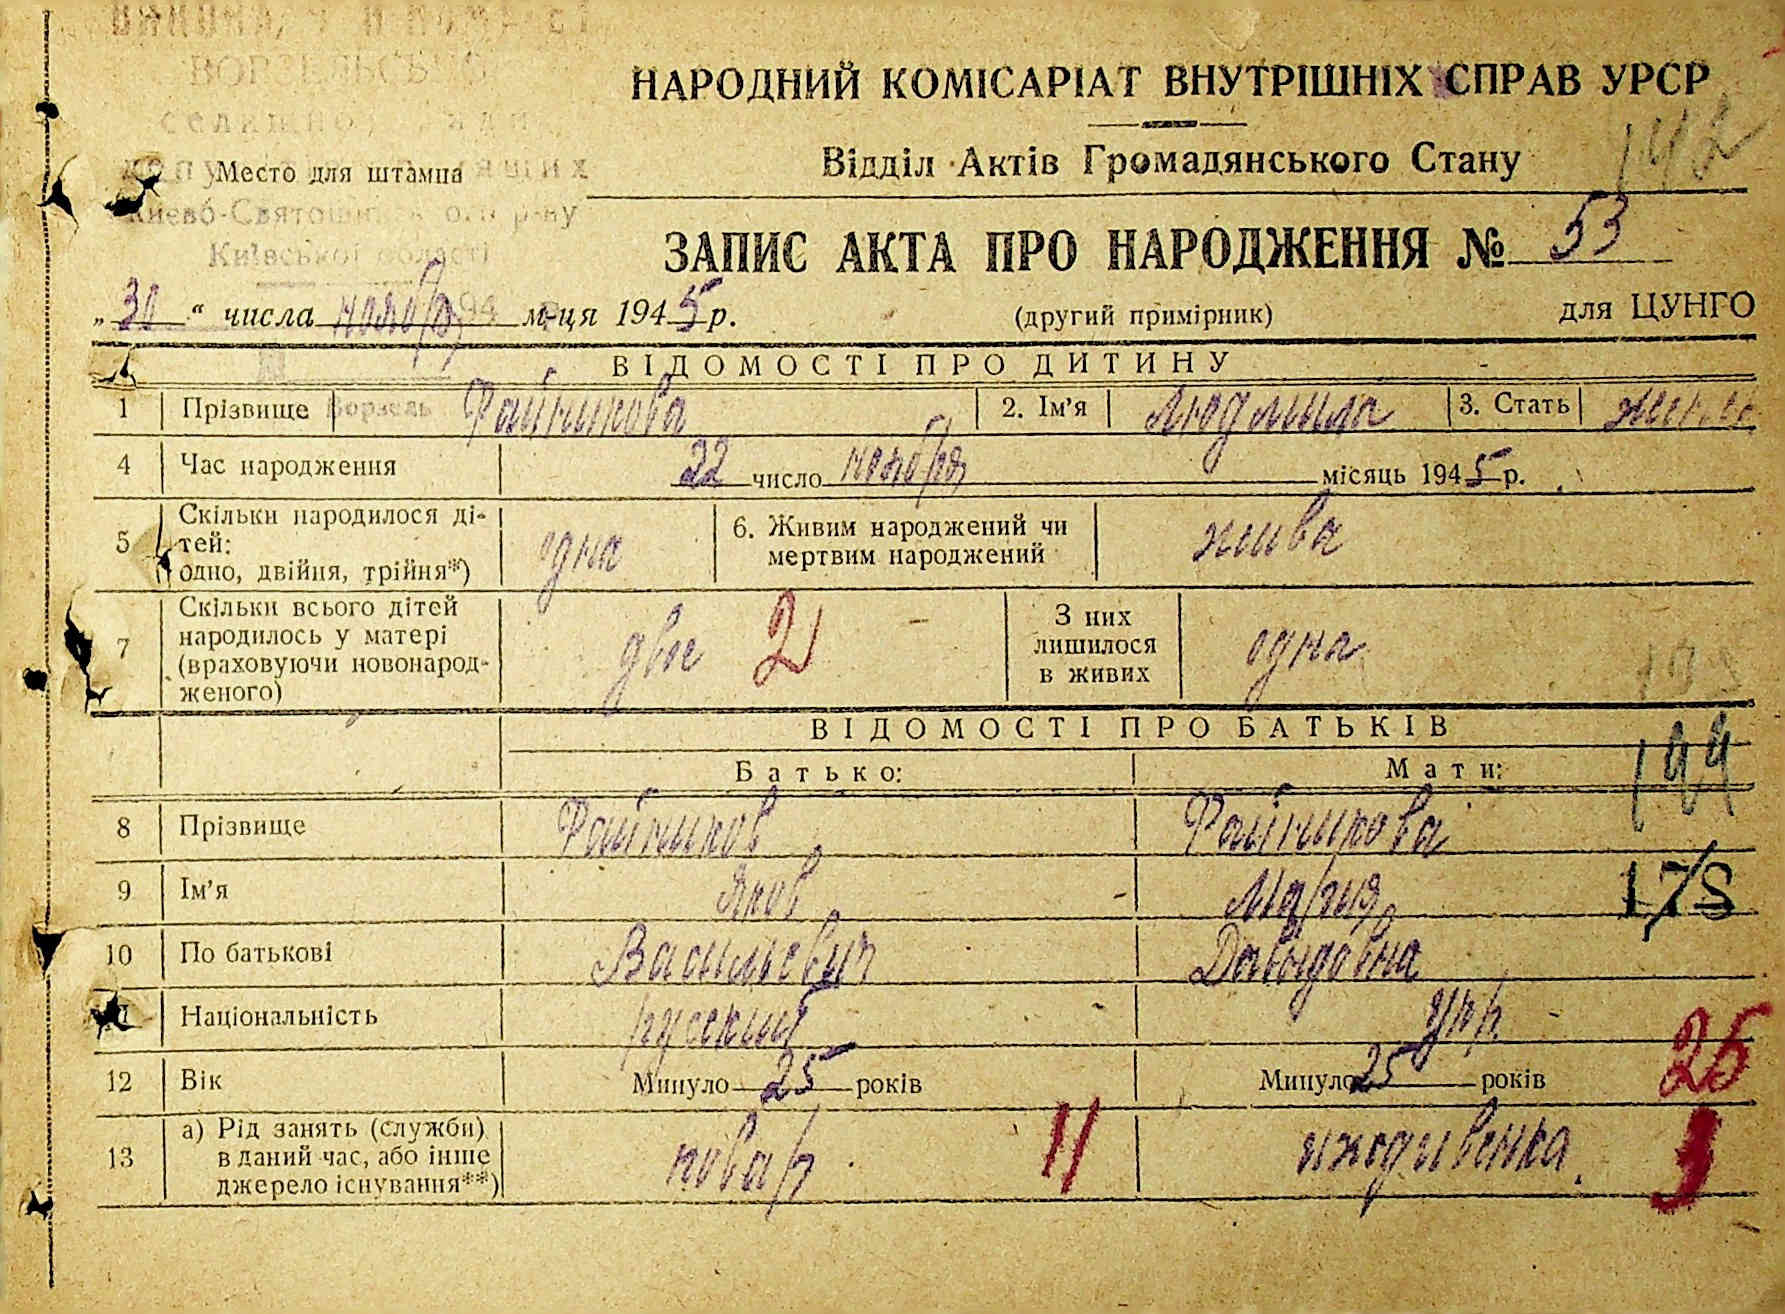 НАРОДНИЙ КОМІСАРІАТ ВНУТРІШНІХ СПРАВ УРСР
ВОРЗЕЛЬСЬКО
Відділ Актів Громадянського Стану
142
Место для штампа
Київської області
ЗАПИС АКТА ПРО НАРОДЖЕННЯ № 53
„30“ числа ноября м-ця 1945 р. (другий примірник) для ЦУНГО
ВІДОМОСТІ ПРО ДИТИНУ
1 Прізвище Ворзель Файникова 2. Ім'я Людмила 3. Стать
4 Час народження 22 число ноября місяць 1945 р.
5 Скільки народилося ді-
тей:
одно, двійня, трійня*) одна 6. Живим народжений чи
мертвим народжений жива
7 Скільки всього дітей
народилось у матері
(враховуючи новонарод-
женого) двое 2 З них
лишилося
в живих одна
ВІДОМОСТІ ПРО БАТЬКІВ
144
Батько: Мати:
8 Прізвище Файников Файникова
9 Ім'я Яков Мария 178
10 По батькові Васильевич Давыдовна
Національність русский укр.
12 Вік Минуло 25 років Минуло 25 років 26
13 а) Рід занять (служби)
в даний час, або інше
джерело існування**) повар 11 иждивенка.